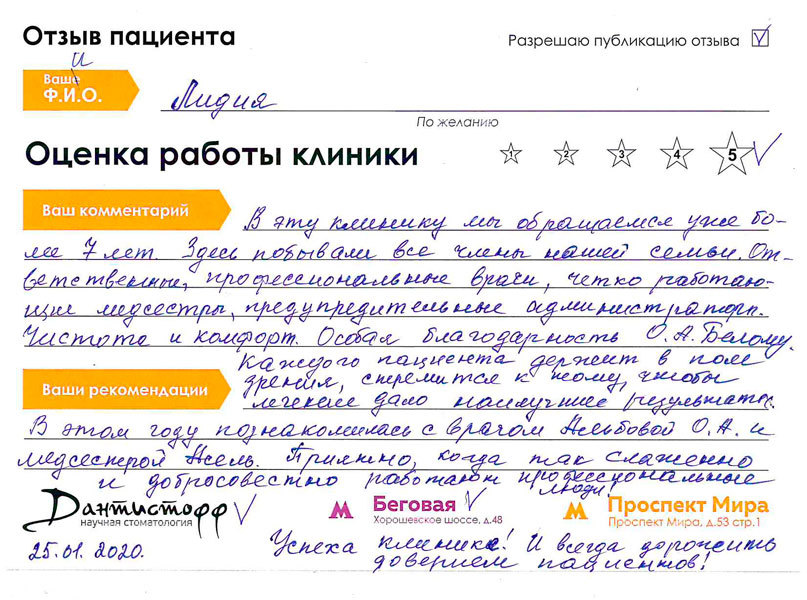 Отзыв пациента
Разрешаю публикацию отзыва ✓
и
Ваше
Ф.И.О.
Лидия
По желанию
Оценка работы клиники
1 2 3 4 5 ✓
Ваш комментарий
В эту клинику мы обращаемся уже бо-
лее 7 лет. Здесь побывали все члены нашей семьи. От-
ветственные, профессиональные врачи, четко работаю-
щие медсестры, предупредительные администраторы.
Чистота и комфорт. Особая благодарность О.А. Белому.
Каждого пациента держит в поле
зрения, стремится к тому, чтобы
Ваши рекомендации
лечение дало наилучшие результаты.
В этом году познакомилась с врачом Альбовой О.А. и
медсестрой Асель. Приятно, когда так слаженно
и добросовестно работают профессиональные
люди!
Дантистофф ✓
научная стоматология
Беговая ✓
Хорошевское шоссе, д.48
Проспект Мира
Проспект Мира, д.53 стр.1
25.01.2020.
Успеха клинике! И всегда дорожить
доверием пациентов!